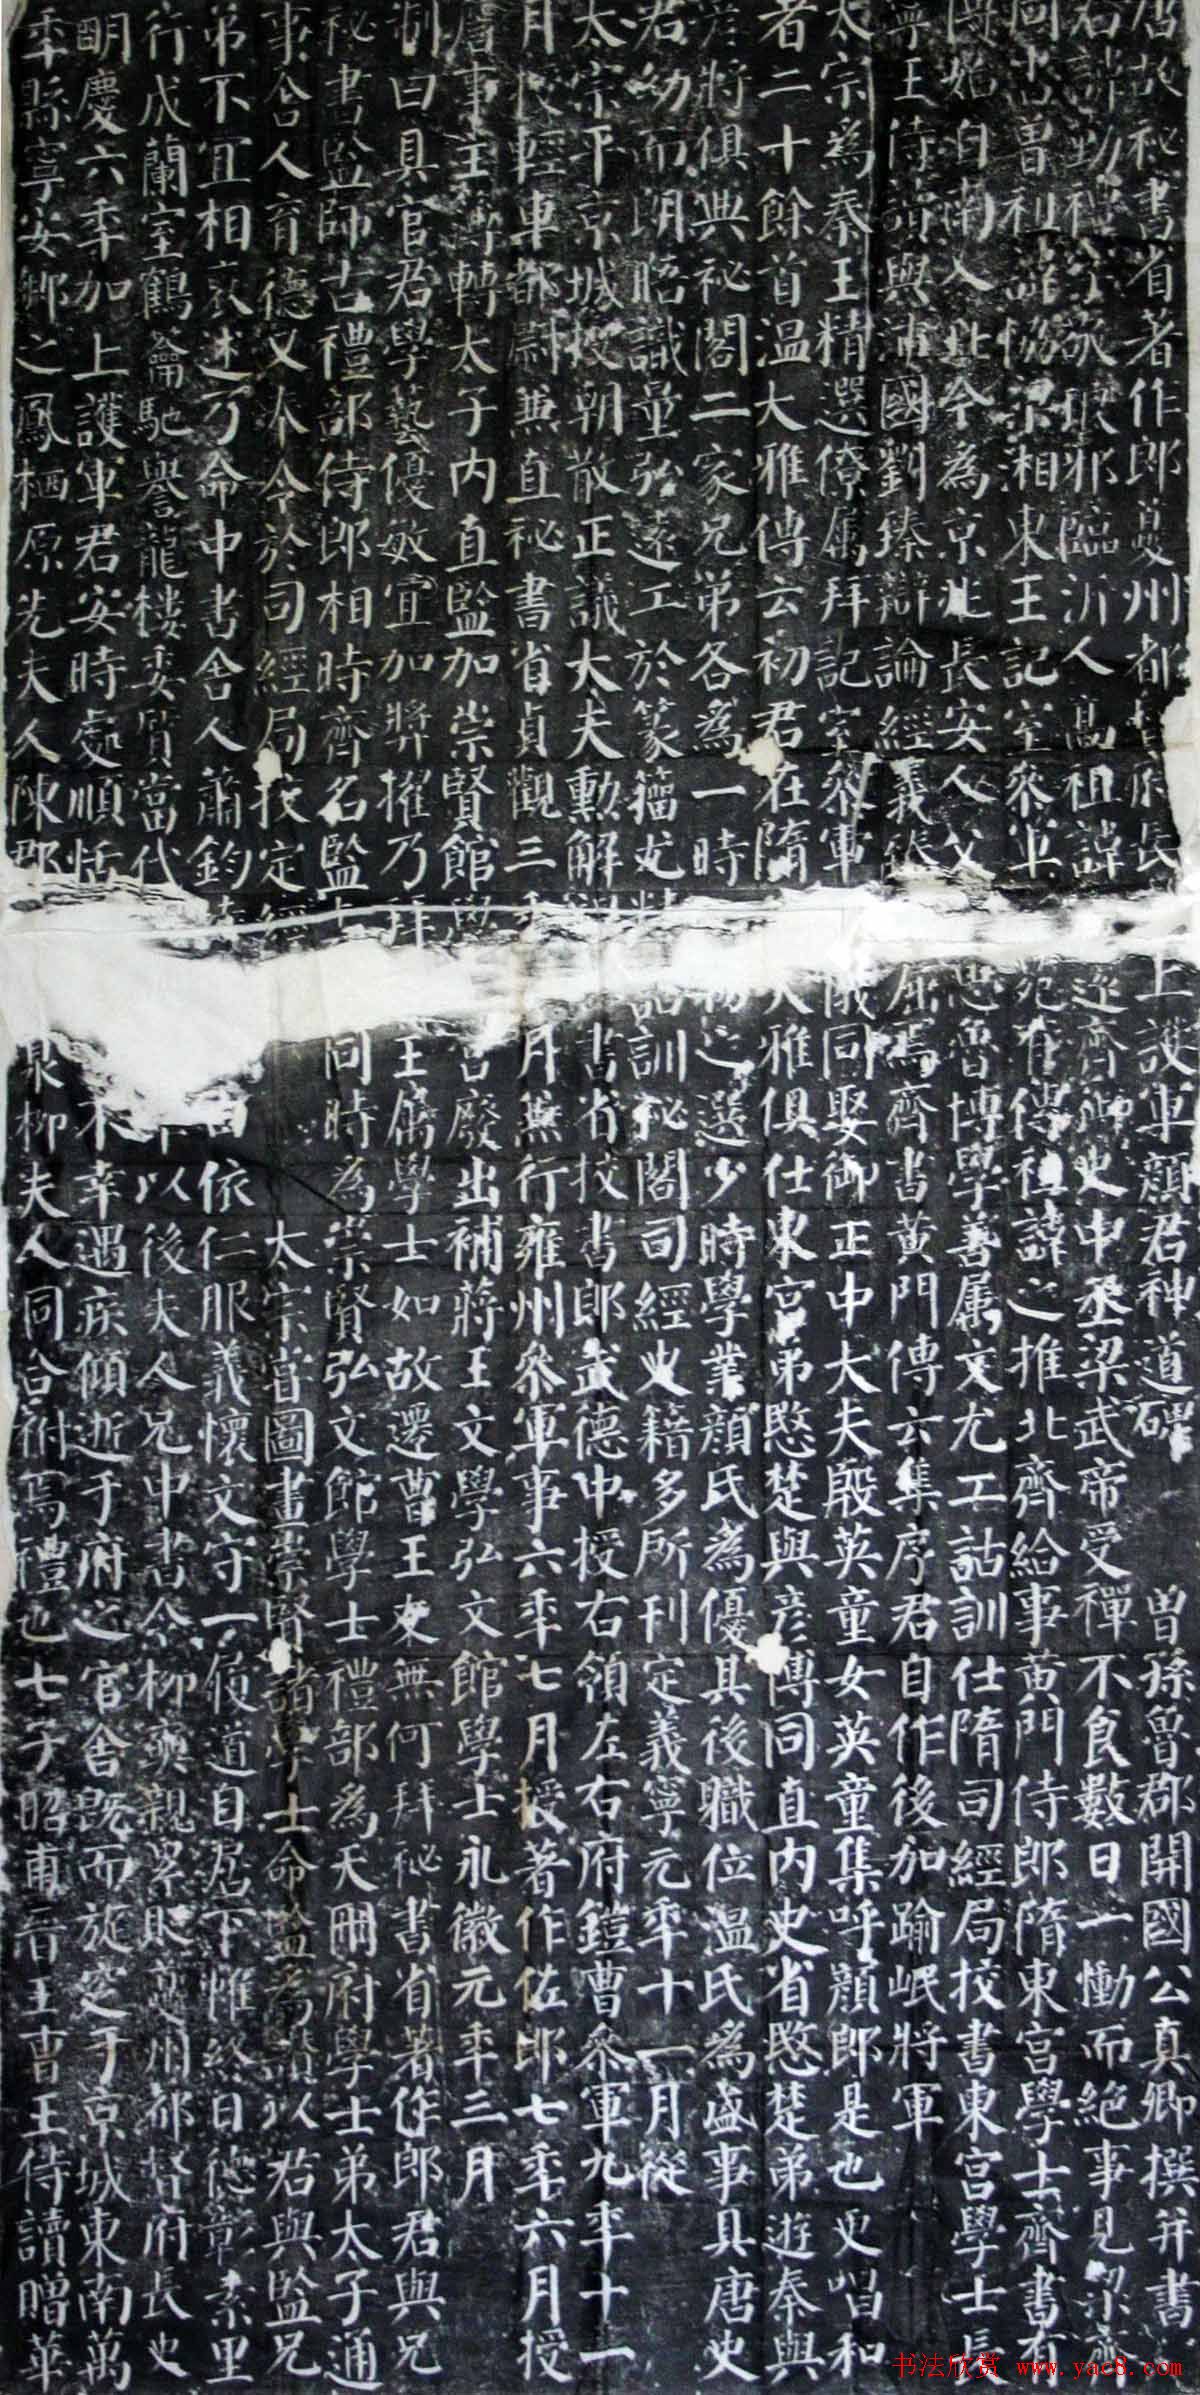 唐故秘書省著作郎夔州都督府長上護軍顏君神道碑 曾孫魯郡開國公真卿撰并書
君諱勤禮字敬瑯邪臨沂人高祖諱見遠齊御史中丞梁武帝受禪不食數日一慟而絕事見梁齊
周書曾祖諱協梁湘東王記室參軍文苑有傳祖諱之推北齊給事黃門侍郎隋東宮學士齊書有
傳始自南入北今為京兆長安人父思魯博學善屬文尤工詁訓仕隋司經局校書東宮學士長
寧王侍讀與沛國劉臻辯論經義臻屈焉齊書黃門傳云集序君自作後加踰岷將軍
太宗為秦王精選僚屬拜記室參軍儀同娶御正中大夫殷英童女英童集呼顏郎是也更唱和
者二十餘首溫大雅傳云初君在隋大雅俱仕東宮弟愍楚與彥博同直內史省愍楚弟遊秦與
彥將俱典祕閣二家兄弟各為一時之選少時學業顏氏為優其後職位溫氏為盛事具唐史
君幼而朗晤識量弘遠工於篆籀尤精詁訓祕閣司經史籍多所刊定義寧元年十一月從
太宗平京城授朝散正議大夫勳解褐書省校書郎武德中授右領左右府鎧曹參軍九年十一
月授輕車都尉兼直秘書省貞觀三月兼行雍州參軍事六年七月授著作佐郎七年六月授
詹事主簿轉太子內直監加崇賢館學宮廢出補蔣王文學弘文館學士永徽元年三月
制曰具官君學藝優敏宜加獎擢乃拜王屬學士如故遷曹王友無何拜秘書省著作郎君與兄
秘書監師古禮部侍郎相時齊名監同時為崇賢弘文館學士禮部為天冊府學士弟太子通
事舍人育德又奉令於司經局校定經太宗嘗圖畫崇賢諸學士命監為讚以君與監兄
弟不宜相褒述乃命中書舍人蕭鈞依仁服義懷文守一履道自居下帷終日德彰素里
行成蘭室鶴籥馳譽龍樓委質當代以後夫人兄中書令柳奭親累貶夔州都督府長史
明慶六年加上護軍君安時處順恬不幸遇疾傾逝于府之官舍既而旋窆于京城東南萬
年縣寧安鄉之鳳栖原先夫人陳郡柳夫人同合祔焉禮也七子昭甫晉王曹王侍讀贈華
书法欣赏 www.yac8.com